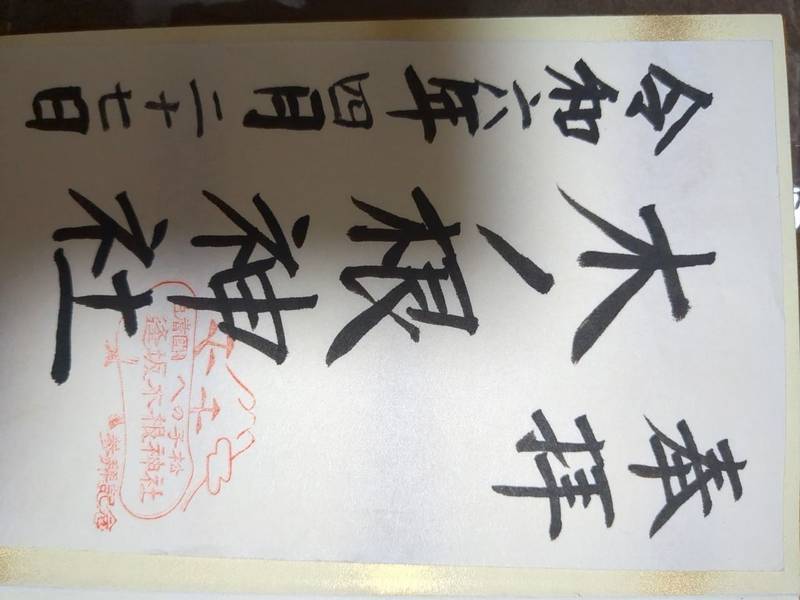 奉拝
木ノ根神社
令和六年四月二十七日
逢坂木根神社
参拝記念